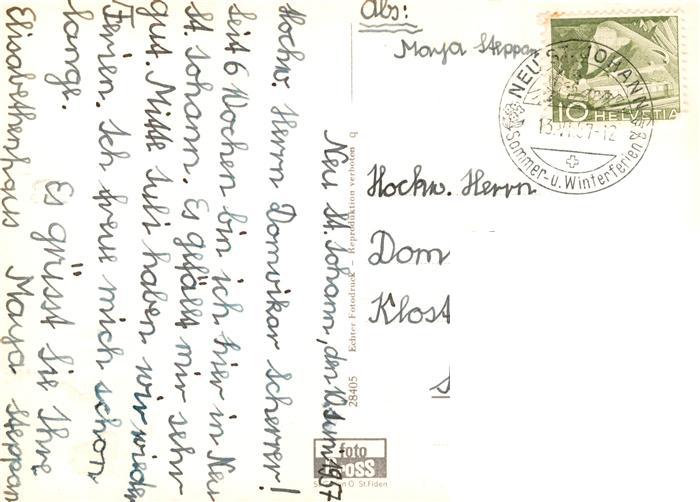 Neu St. Johann, den Juni 1957
Hochw. Herrn Domvikar Scherrer!
Seit 6 Wochen bin ich hier in Neu
St. Johann. Es gefällt mir sehr
gut. Mitte Juli haben wir wieder
Ferien. Ich freue mich schon
lange.
Es grüsst Sie Ihre
Elisabethenhaus Maya Steppan
Abs:
Maya Steppan
NEU ST. JOHANN
Sommer- u. Winterferien
10 HELVETIA
Hochw. Herrn
Dom
Klost
28405 Echter Fotodruck – Reproduktion verboten q
foto
GROSS
O St. Fiden